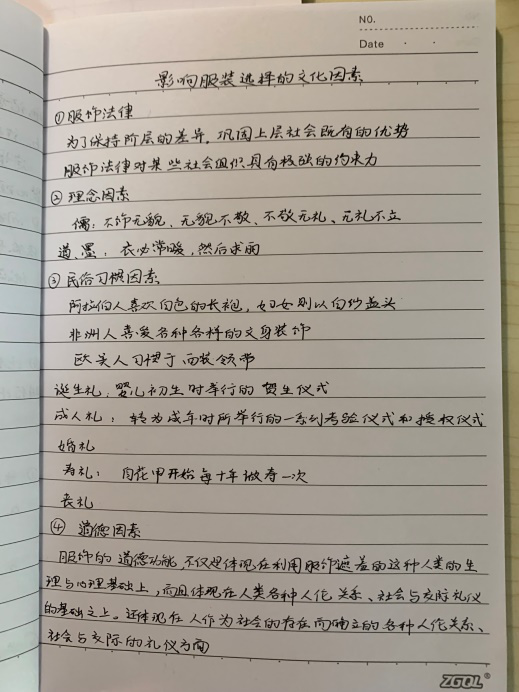 NO.
Date
影响服装选择的文化因素
①服饰法律
为了保持阶层的差异,巩固上层社会既有的优势
服饰法律对某些社会组织具有极强的约束力
②理念因素
儒:不饰无貌、无貌不敬、不敬无礼、无礼不立
道 墨:衣必常暖,然后求丽
③民俗习惯因素
阿拉伯人喜欢白色的长袍,妇女则以白纱盖头
非洲人喜爱各种各样的文身装饰
欧美人习惯于西装领带
诞生礼:婴儿初生时举行的 贺生仪式
成人礼:转为成年时所举行的一系列考验仪式和授权仪式
婚礼
寿礼:自花甲开始每十年做寿一次
丧礼
④ 道德因素
服饰的道德功能,不仅是体现在利用服饰遮羞的这种人类的生
理与心理基础上,而且体现在人类各种人伦关系、社会与交际礼仪
的基础之上。还体现在人作为社会的存在而确立的各种人伦关系、
社会与交际的礼仪方面
ZGQL®